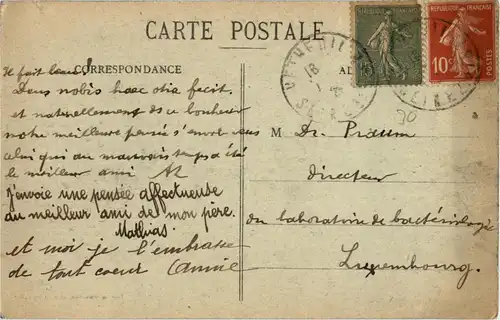 CARTE POSTALE
CORRESPONDANCE
Il fait beau!
Deus nobis haec otia fecit
et naturellement de ce bonheur
notre meilleure pensée s'envole vers
celui qui au mauvais temps a été
le meilleur ami
J'envoie une pensée affectueuse
au meilleur ami de mon père.
Mathias.
et moi je l'embrasse
de tout coeur Annie
REPUBLIQUE FRANÇAISE
10c
POSTES
M Dr. Praum
Directeur
du laboratoire de bactériologie
Luxembourg.